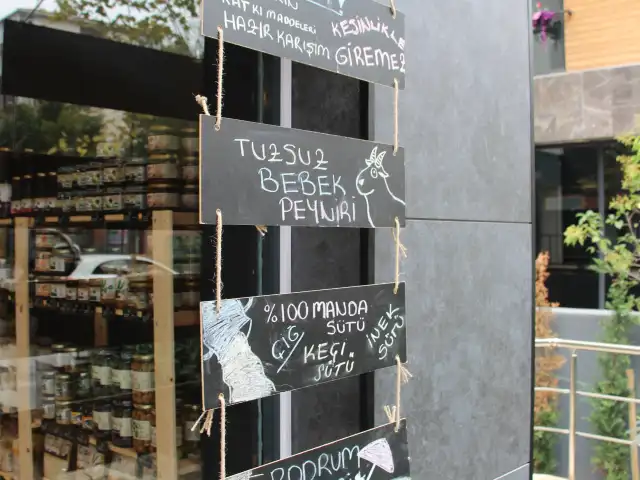 KATKI MADDELERİ
HAZIR KARIŞIM
KESİNLİKLE
GİREMEZ
TUZSUZ
BEBEK
PEYNİRİ
%100 MANDA
SÜTÜ
ÇİĞ/
KEÇİ
SÜTÜ
İNEK
SÜTÜ
BODRUM